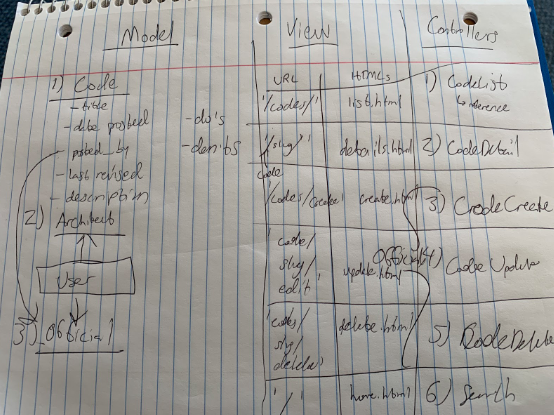 Model
1) Code
- title
- date posted
- posted_by
- last revised
- description
- do's
- dont's
2) Architect
User
3) Official
View
URL
HTMLs
'/codes/'
list.html
'/slug/'
details.html
code
'/codes/create'
create.html
'code/
slug/
edit'
update.html
Official
'codes/
slug/
delete'
delete.html
'/'
home.html
Controllers
1) CodeList
2) CodeDetail
3) CodeCreate
4) CodeUpdate
5) CodeDelete
6) Search